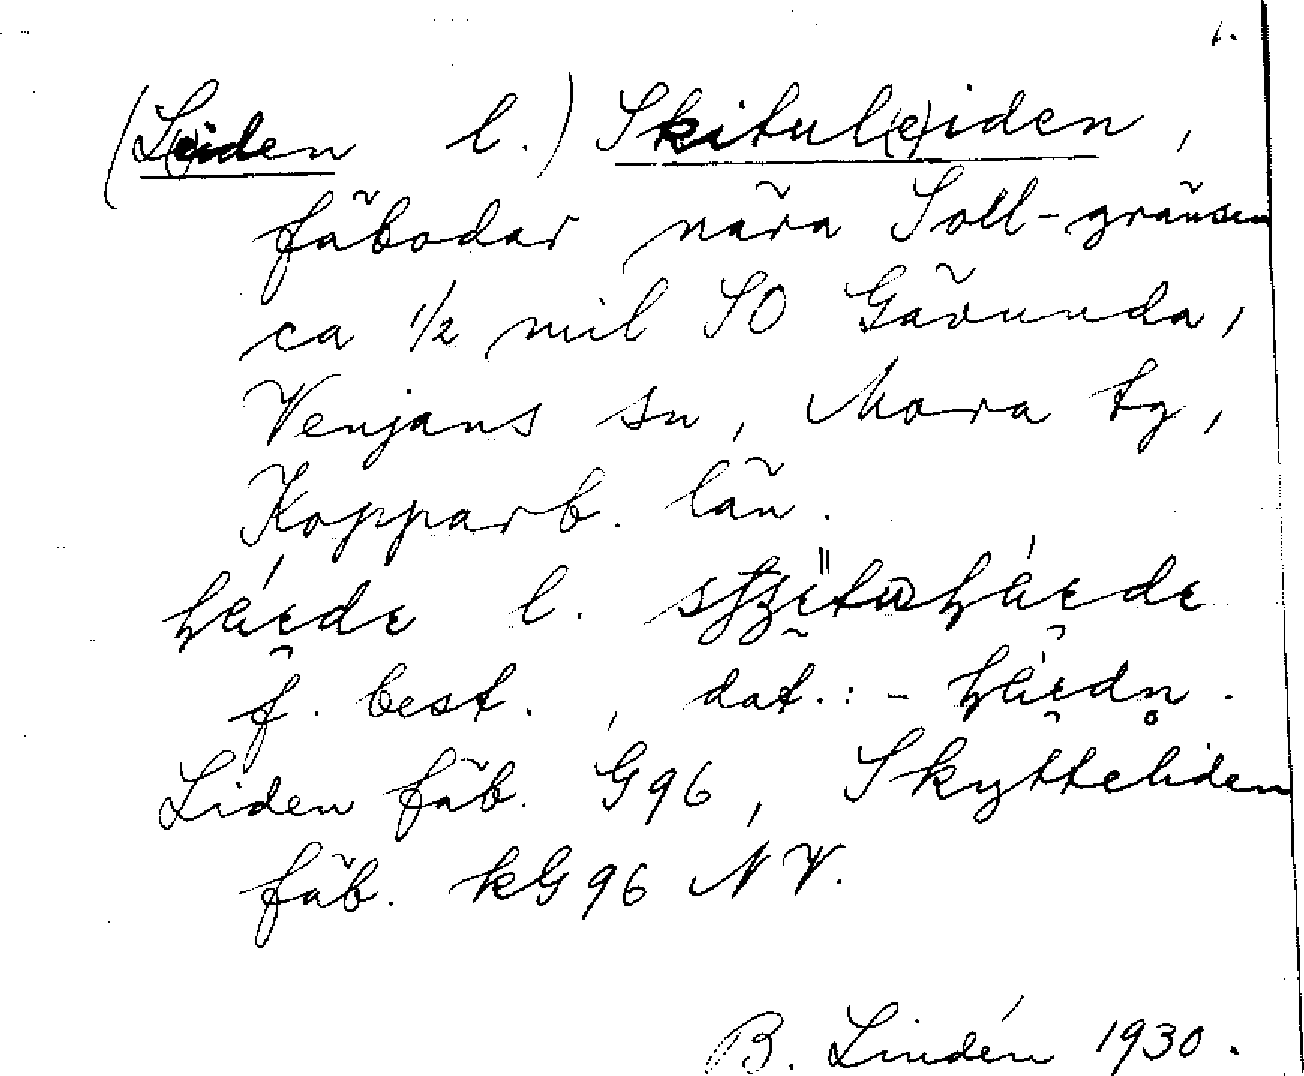 1.
(L(e)iden l.) Skitul(e)iden,
fäbodar nära Soll-gränsen
ca 1/2 mil SO Gävunda,
Venjans sn, Mora tg,
Kopparb. län.
l.
f. best., dat.: -
Liden fäb. G96, Skytteliden
fäb. kG96 NV.
B. Lindén 1930.